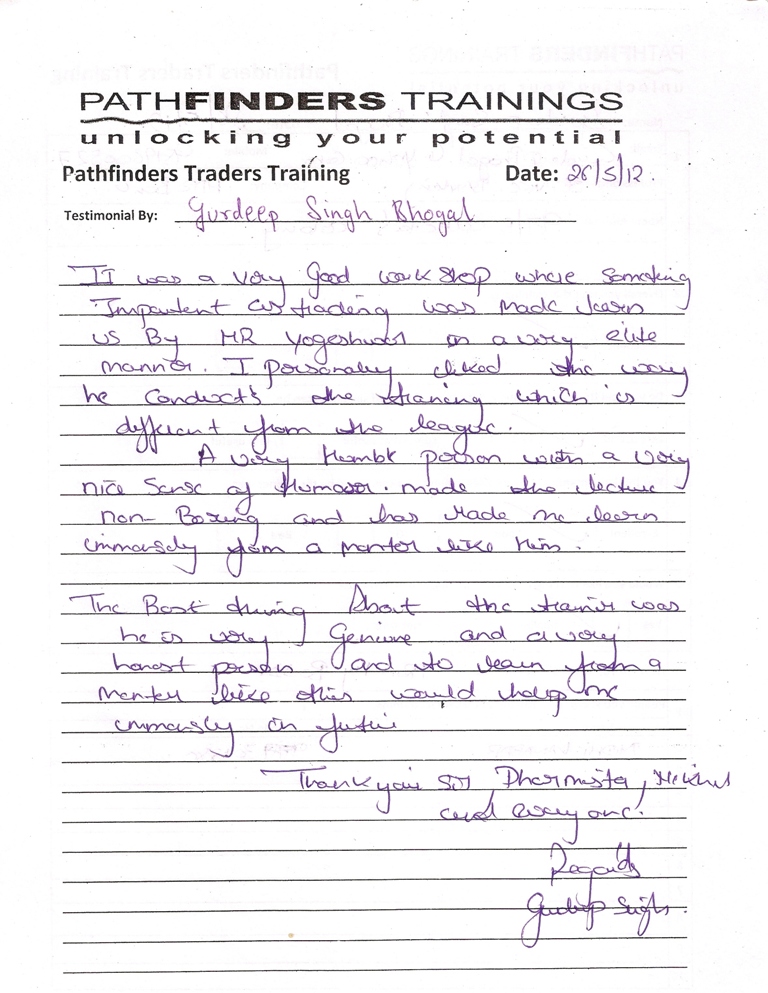 PATHFINDERS TRAININGS
unlocking your potential
Pathfinders Traders Training Date: 26/5/12.
Testimonial By: Gurdeep Singh Bhogal
It was a very Good work shop where something
Important as trading was made learn
us By MR Yogeshwar in a very elite
manner. I personally liked the way
he conducts the training which is
different from the league.
A very Humble person with a very
nice Sense of Humour. made the lecture
non-Boring and has Made me learn
immensely from a mentor like Him.
The Best thing About the trainer was
he is very Genuine and a very
honest person and to learn from a
mentor like this would help me
immensely in future
Thank you Sir, Dharmista,
and everyone!
Regards
Gurdeep Singh.